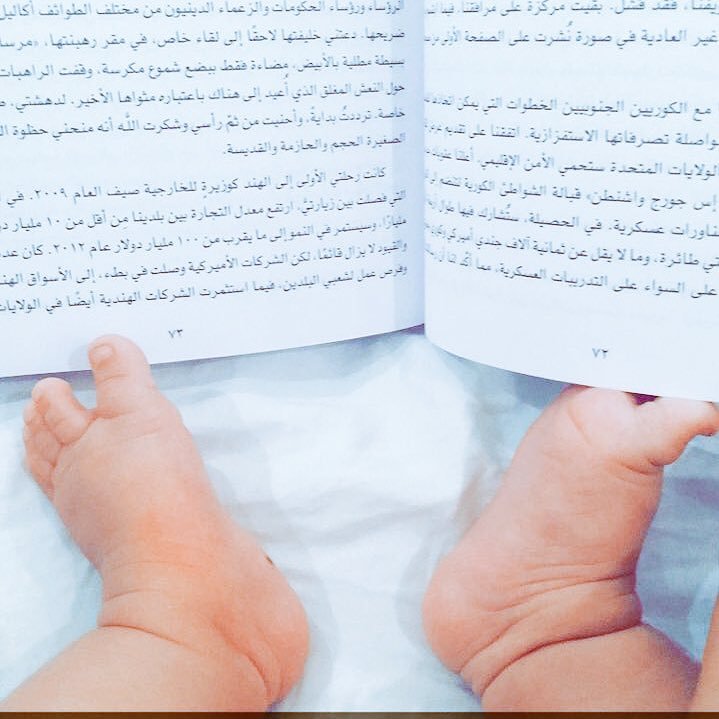 يفنا، فقد فشل. بقيت مركزة على مرافقنا، فيما
غير العادية في صورة نُشرت على الصفحة الأولى
مع الكوريين الجنوبيين الخطوات التي يمكن اتخاذها
واصلة تصرفاتها الاستفزازية. اتفقنا على تقديم
الولايات المتحدة ستحمي الأمن الإقليمي، أعلنا
إس جورج واشنطن» قبالة الشواطئ الكورية لتنضم إلى
مناورات عسكرية. في الحصيلة، ستُشارك فيها طوال
تي طائرة، وما لا يقل عن ثمانية آلاف جندي أميركي
على السواء على التدريبات العسكرية، مما أكّد لنا أن
٧٢
الرؤساء ورؤساء الحكومات والزعماء الدينيون من مختلف الطوائف أكاليل
ضريحها. دعتني خليفتها لاحقًا إلى لقاء خاص، في مقر رهبنتها،
بسيطة مطلية بالأبيض، مضاءة فقط ببضع شموع مكرسة، وقفت الراهبات
حول النعش المغلق الذي أُعيد إلى هناك باعتباره مثواها الأخير. لدهشتي،
خاصة. ترددتُ بدايةً، وأحنيت من ثمّ رأسي وشكرت اللّه أنه منحني حظوة
الصغيرة الحجم والحازمة والقديسة.
كانت رحلتي الأولى إلى الهند كوزيرةٍ للخارجية صيف العام ٢٠٠٩. في
التي فصلت بين زيارتيَّ، ارتفع معدل التجارة بين بلدينا مِن أقل من ١٠ مليار
مليارًا، وسيستمر في النمو إلى ما يقرب من ١٠٠ مليار دولار عام ٢٠١٢. كان
والقيود لا يزال قائمًا، لكن الشركات الأميركية وصلت في بطء، إلى الأسواق
وفرص عمل لشعبي البلدين، فيما استثمرت الشركات الهندية أيضًا في الولايات
٧٣